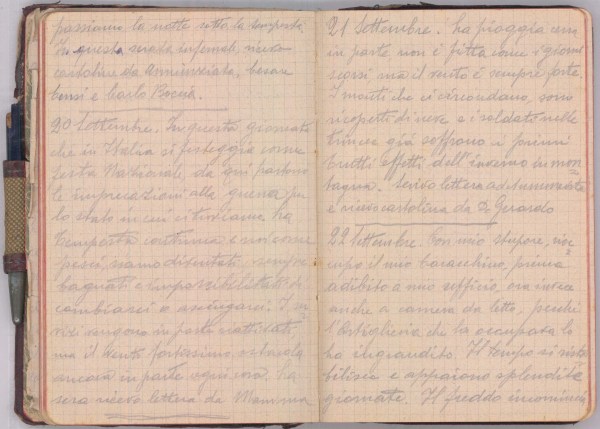 passiamo la notte sotto la tempesta
In questa serata infernale, ricevo
cartoline da Annunziata, Cesare
e Carlo Roccia.
20 Settembre. In questa giornata
che in Italia si festeggia come
festa Nazionale, da qui partono
le imprecazioni alla guerra per
lo stato in cui ci troviamo. La
tempesta continua e noi come
pesci, siamo diventati, sempre
bagnati e impossibilitati di
cambiarci o asciugarci. I
vengono in parte riattivati,
ma il vento fortissimo ostacola
ancora in parte ogni cosa. La
sera ricevo lettera di Mamma
21 Settembre. La pioggia
in parte non è fitta come i giorni
scorsi ma il vento è sempre forte.
I monti che ci circondano, sono
ricoperti di neve e i soldati nelle
trincee già soffrono i primi
brutti effetti dell'inverno in mon=
tagna. Scrivo lettera ad Annunziata
e ricevo cartolina da Gerardo
22 Settembre. Con mio stupore,
cupo il mio baracchino, prima
adibito a mio ufficio, ora invece
anche a camera da letto, perché
l'Artiglieria che la occupata lo
ha ingrandito. Il tempo si rista=
bilisce e appaiono splendide
giornate. Il freddo incomincia